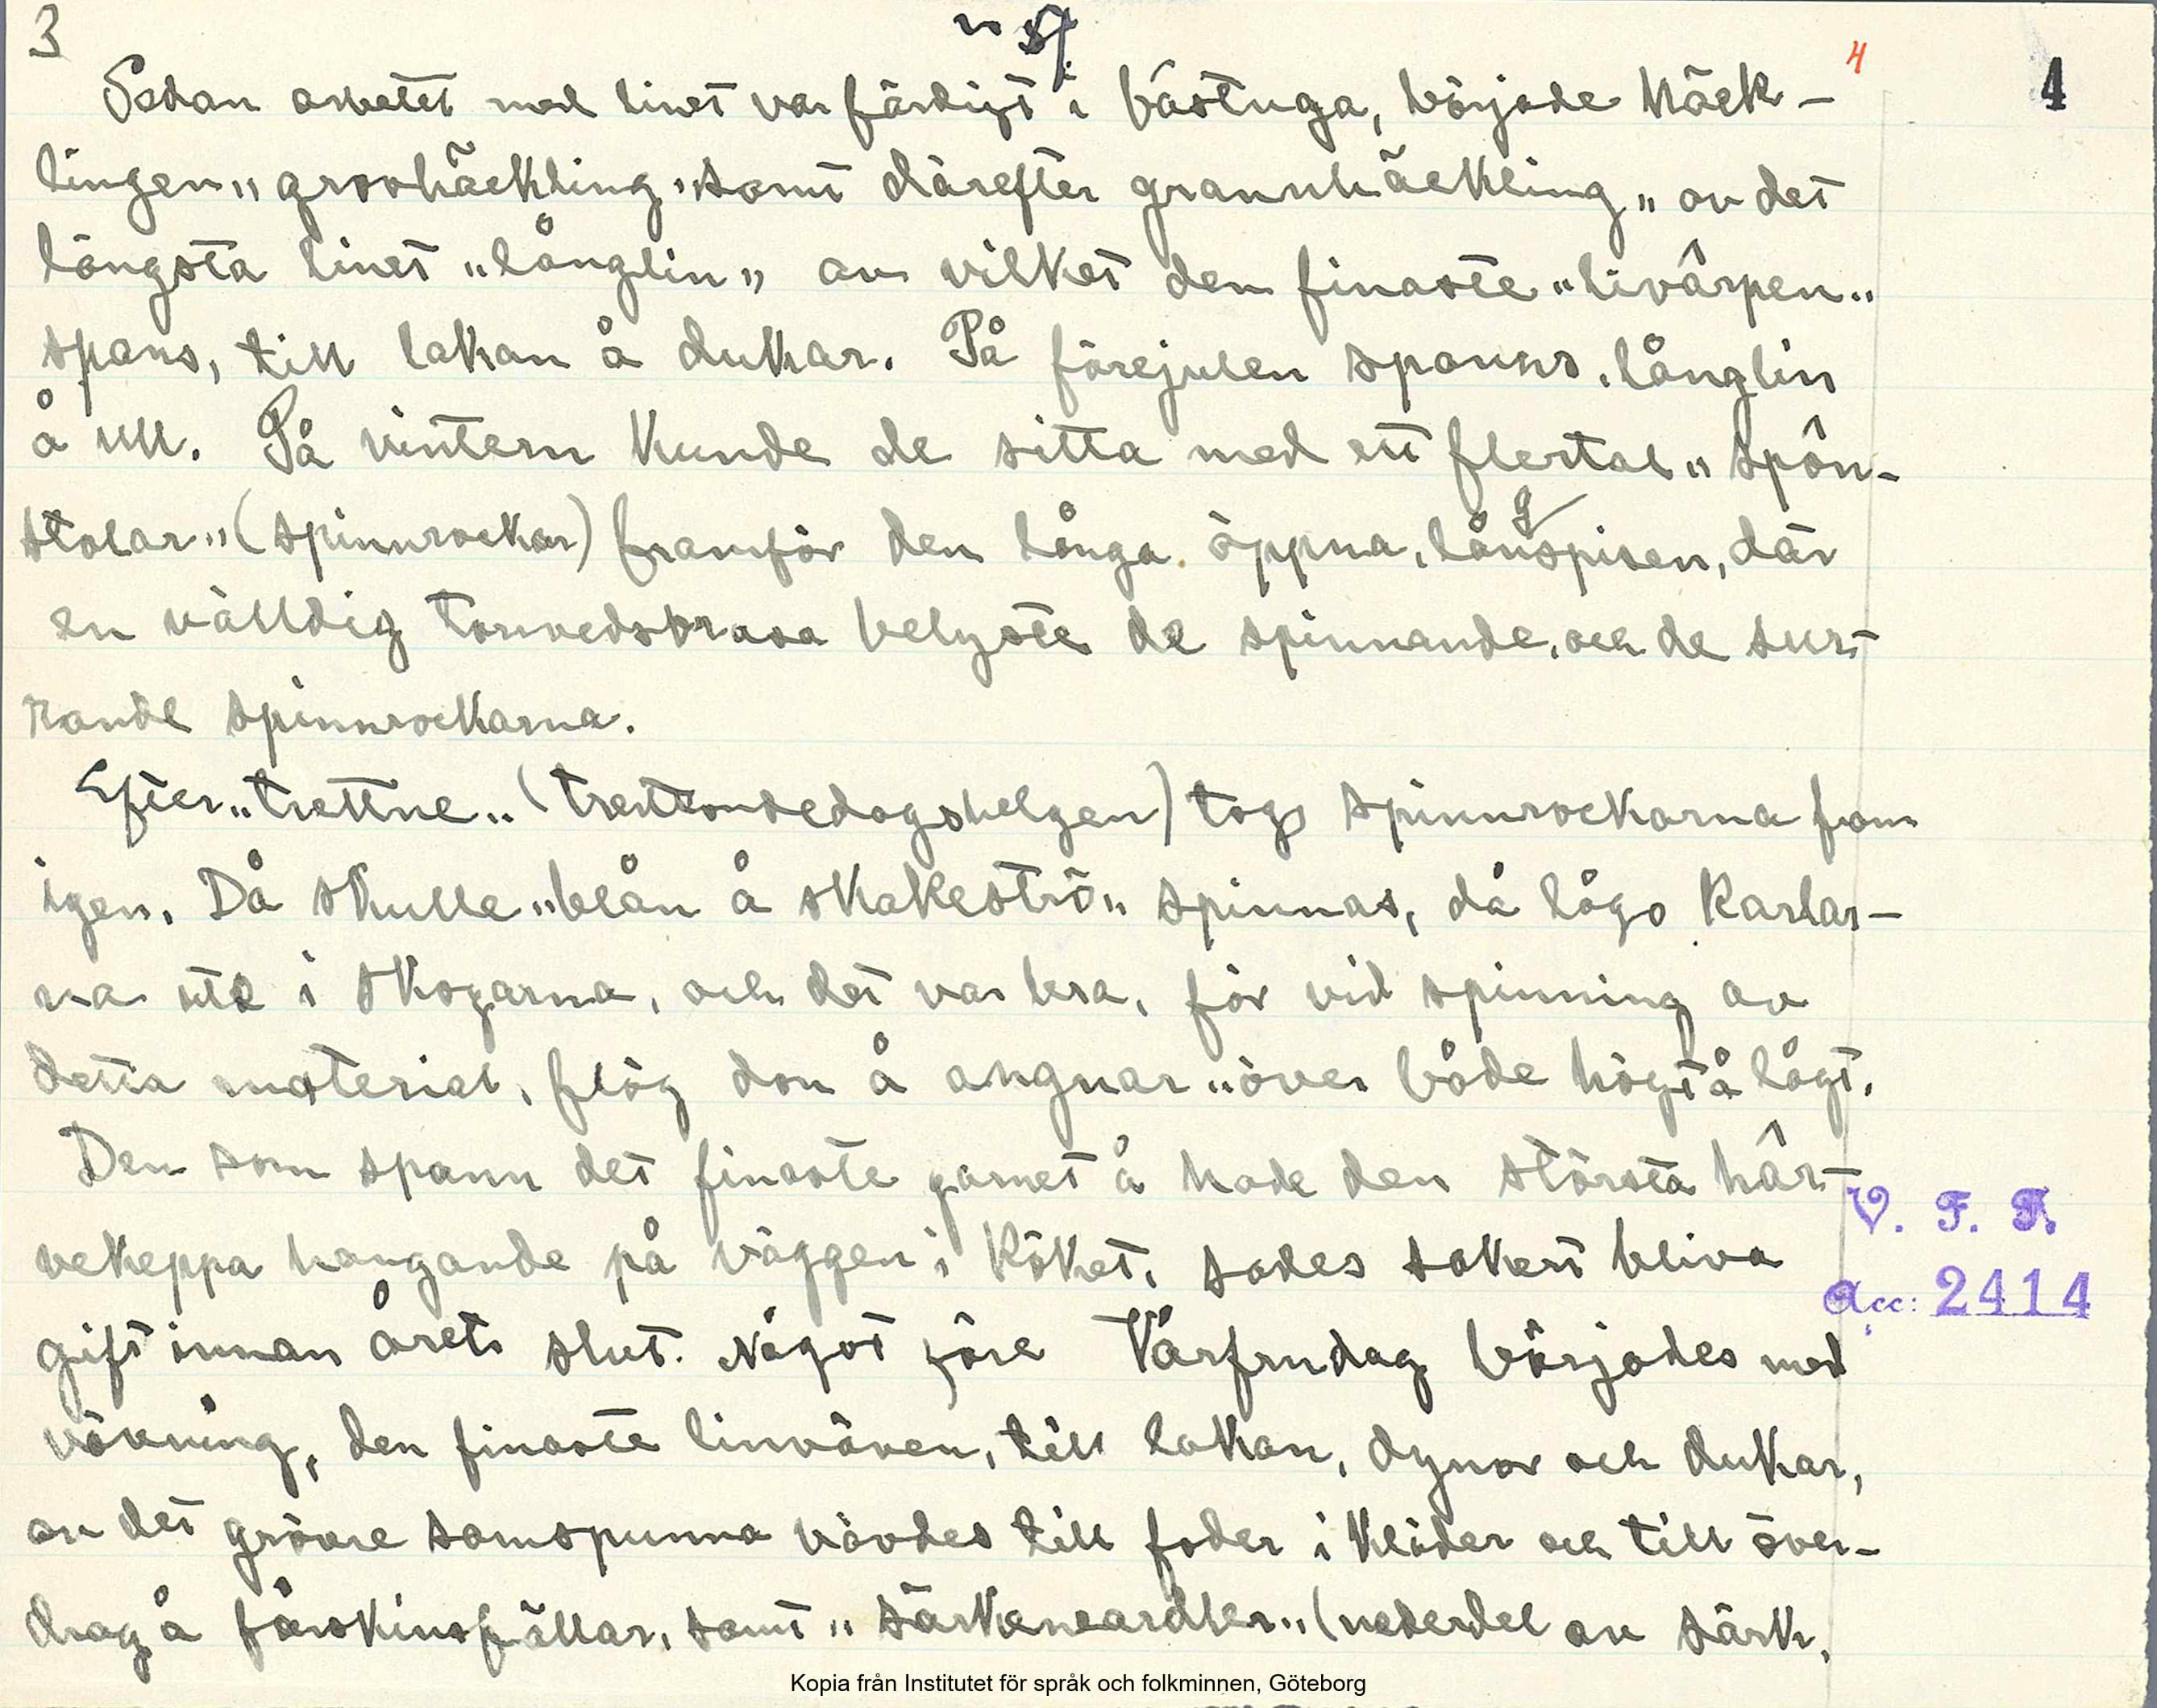 3
4
4
Sedan arbetet med linet var färdigt i bastuga, började häck-
lingen „grovhäckling„ samt därefter grannhäckling„ av det
längsta linet „långlin„ av vilket den finaste „livârpen„
spans, till lakan å dukar. På förejulen spanns, långlin
å ull. På vintern kunde de sitta med ett flertal „spôn-
stolar„ (spinnrockar) framför den långa öppna, långspisen, där
en välldig torrvedsbrasa belyste de spinnande, och de sur-
rande spinnrockarna.
Efter „trettne„ (trettondedagshelgen) togs spinnrockarna fram
igen. Då skulle „blån å skakeströ„ spinnas, då lågo karlar-
na ute i skogarna, och det var bra, för vid spinning av
detta material, flög don å angnar „över både högt å lågt.
Den som spann det finaste garnet å hade den största hâr-
vekeppa hangande på väggen i köket, sades säkert bliva
gift innan årets slut. Något före Vårfrudag börjades med
vävning, den finaste linväven, till lakan, dynor och dukar,
av det grövre samspunna vävdes till foder i kläder och till över-
drag å fårskinsfällar, samt „särkaneardler„ (nederdel av särk,
V. F. F.
Acc: 2414
Kopia från Institutet för språk och folkminnen, Göteborg